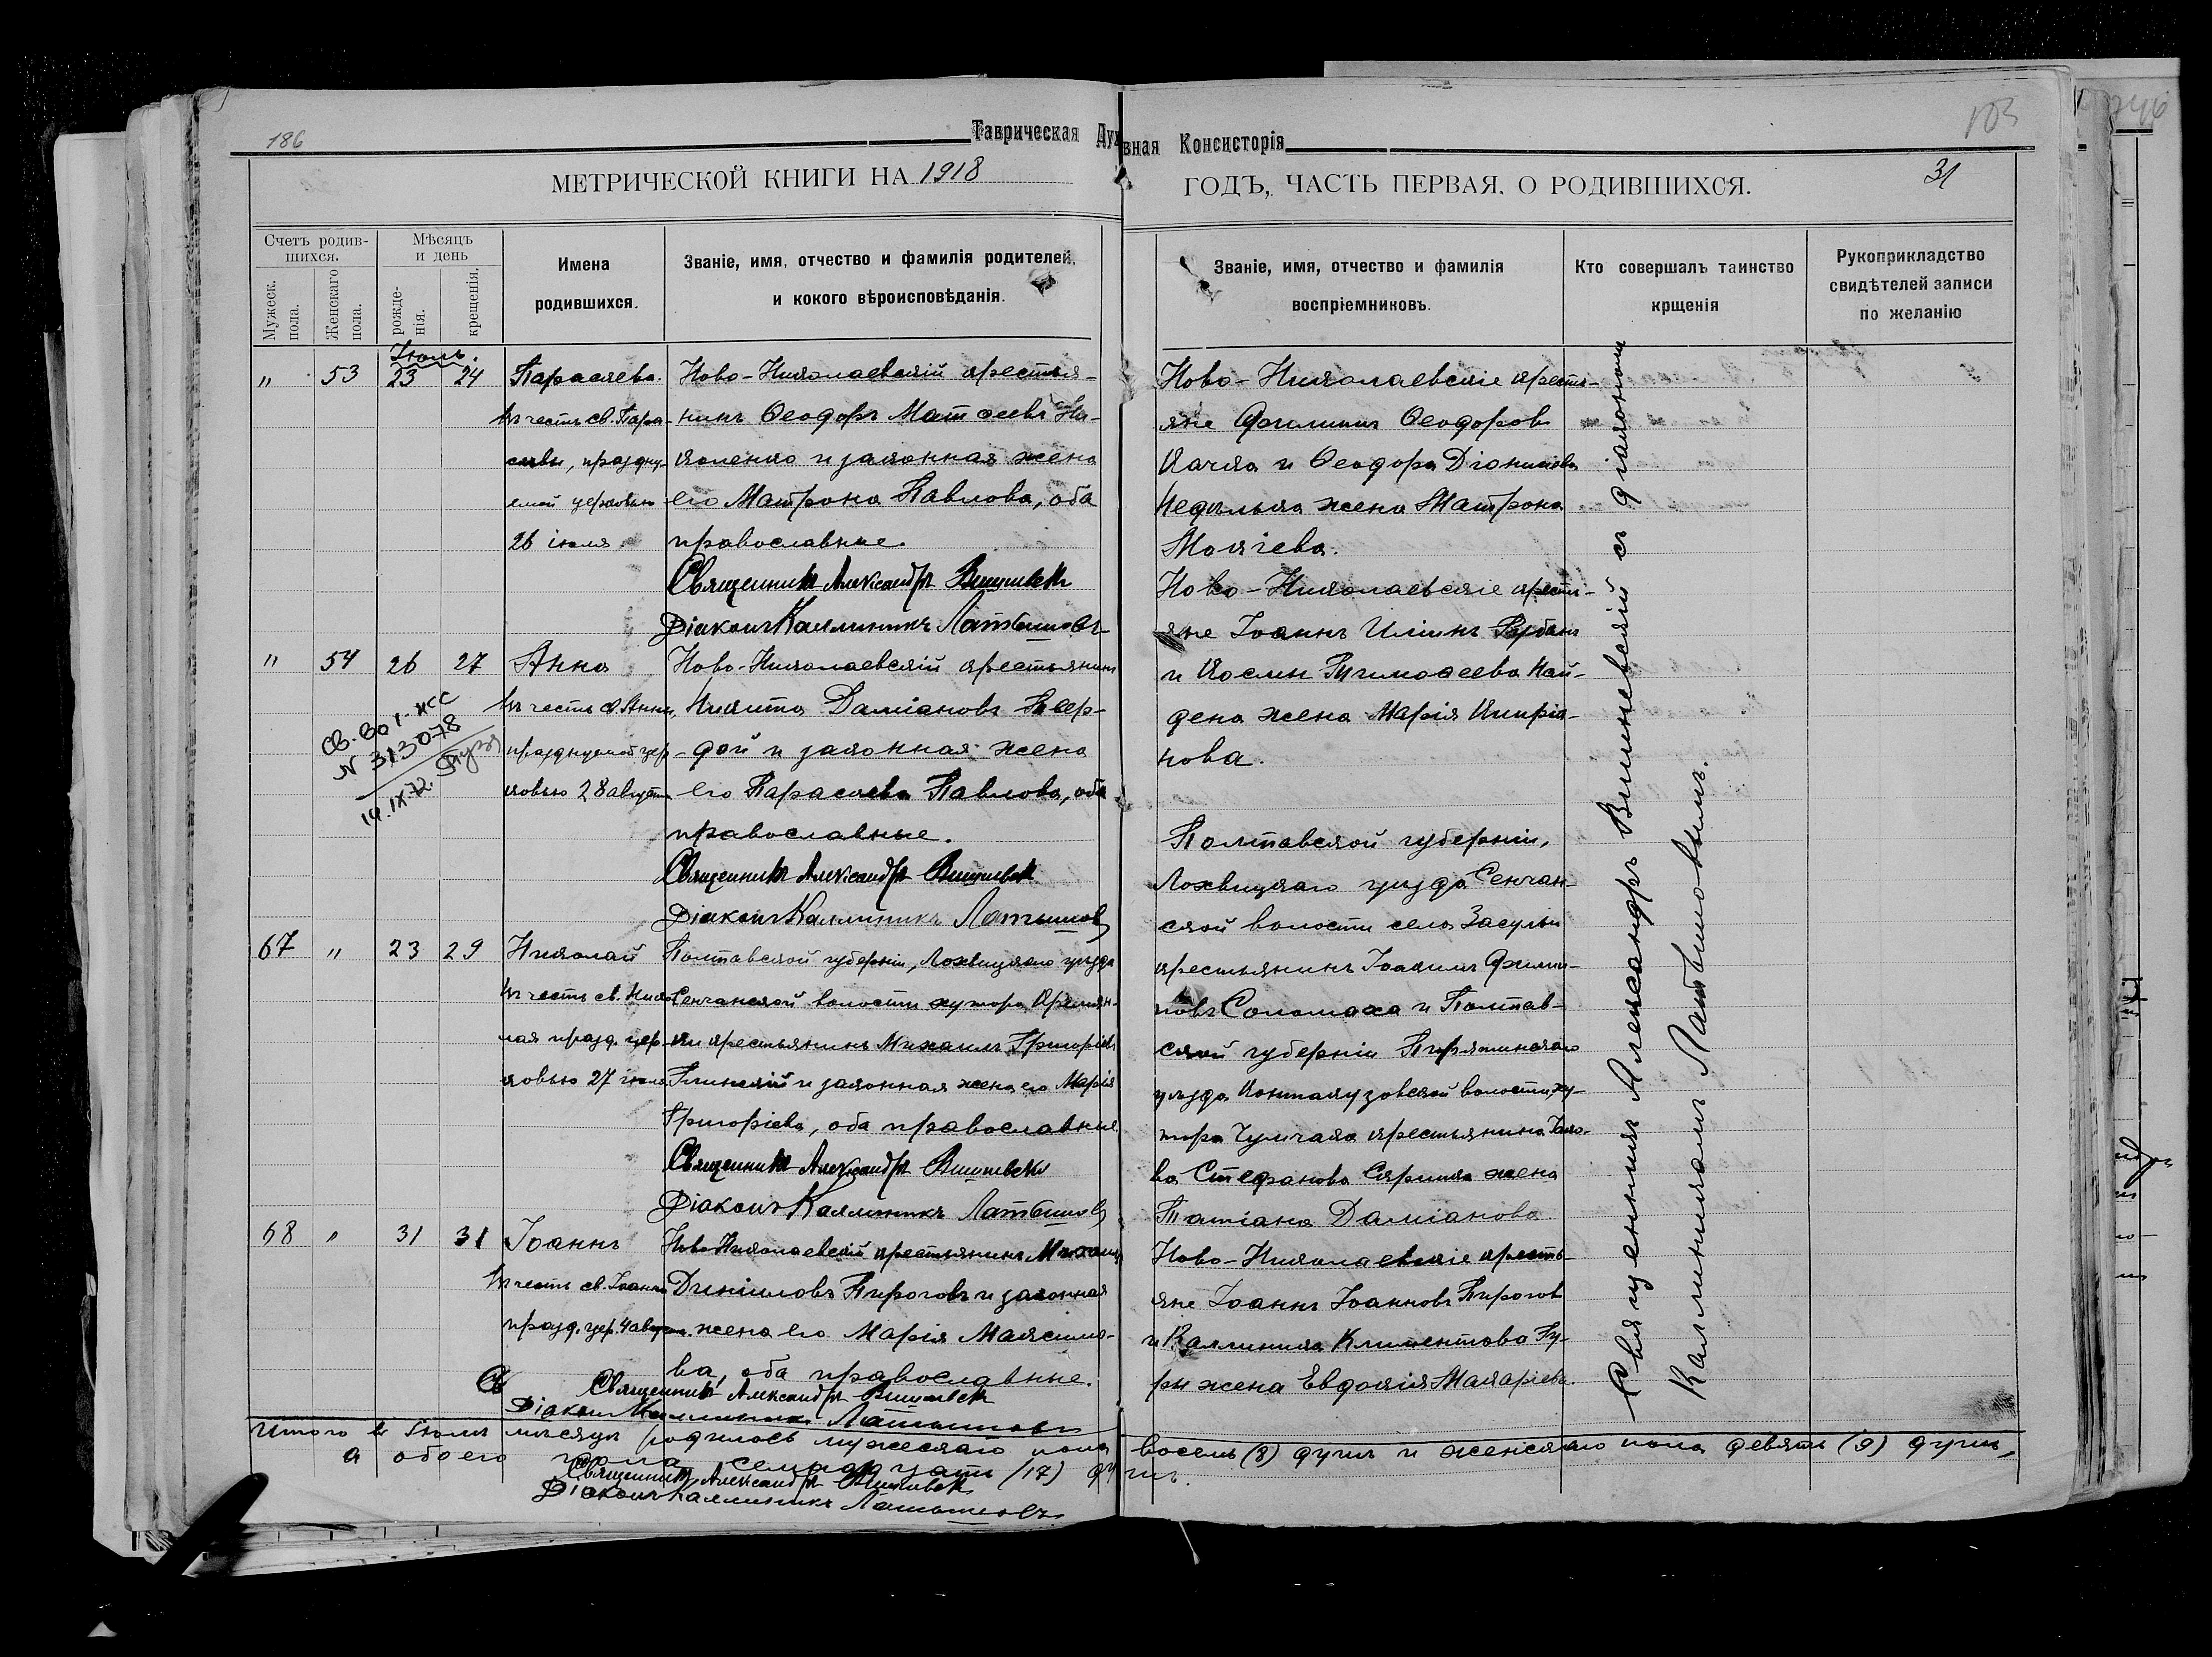 186
Таврическая Духовная Консисторія
103
МЕТРИЧЕСКОЙ КНИГИ НА 1918
ГОДЪ, ЧАСТЬ ПЕРВАЯ, О РОДИВШИХСЯ.
31
Счетъ родив-
шихся.
Мужеск.
пола.
Женскаго
пола.
Мѣсяцъ
и день
рожде-
нія.
крещенія.
Имена
родившихся.
Званіе, имя, отчество и фамилія родителей,
и кокого вѣроисповѣданія.
Званіе, имя, отчество и фамилія
воспріемниковъ.
Кто совершалъ таинство
крщенія
Рукоприкладство
свидѣтелей записи
по желанію
Іюль.
" 53 23 24
Параскева.
въ честь св. Пара-
скевы, праздну-
емой церковью
26 іюля
Ново-Николаевскій крестья-
нинъ Ѳеодоръ Матѳеевъ Ни-
коленко и законная жена
его Матрона Павлова, оба
православные.
Священникъ Александръ Вишневск
Діаконъ Каллиникъ Латышовъ
Ново-Николаевскіе кресть-
яне Филиппъ Ѳеодоровъ
Качка и Ѳеодора Діонисова
Недѣлька жена Матрона
Мокіева.
" 54 26 27
Анна
въ честь св. Анны,
празднуемой цер-
ковью 28 августа
Св. ВОІ-ЖС
N 313078
14.IX.72.
Ново-Николаевскій крестьянинъ
Никита Даміановъ Твер-
дой и законная жена
его Параскева Павлова, оба
православные.
Священникъ Александръ Вишневск
Діаконъ Каллиникъ Латышовъ
Ново-Николаевскіе кресть-
яне Іоаннъ Иліинъ
и Тимоѳеева Най-
дена жена Марія Кипріа-
нова.
67 " 23 29
Николай
въ честь св. Нико-
лая празд. цер-
ковью 27 іюля
Полтавской губерніи, Лохвицкаго уѣзда
Сенчанской волости хутора
крестьянинъ Михаилъ Григоріевъ
Глинскій и законная жена его Марія
Григоріева, оба православные
Священникъ Александръ Вишневск
Діаконъ Каллиникъ Латышовъ
Полтавской губерніи,
Лохвицкаго уѣзда Сенчан-
ской волости села Засулья
крестьянинъ Іоакимъ Филип-
повъ Соломаха и Полтав-
ской губерніи Пирятинскаго
уѣзда волости, ху-
тора крестьянина Іако-
ва Стефанова жена
Татіана Даміанова
68 " 31 31
Іоаннъ
въ честь св. Іоанна
празд. цер. 4 август.
Ново-Николаевскій крестьянинъ Михаилъ
Пироговъ и законная
жена его Марія Максимо-
ва, оба православные.
Св
Священникъ Александръ Вишневск
Діаконъ Каллиникъ Латышовъ
Ново-Николаевскіе кресть-
яне Іоаннъ Іоанновъ Пирогов
и Каллиника Климентова Гу-
ры жена Евдокія Макаріева.
Священникъ Александръ Вишневскій съ діакономъ
Каллиникомъ Латышовымъ.
Итого въ Іюлѣ мѣсяцѣ родилось мужескаго пола восемь (8) душъ и женскаго пола девять (9) душъ,
а обоего пола семнадцать (17) душъ.
Священникъ Александръ Вишневск
Діаконъ Каллиникъ Латышовъ